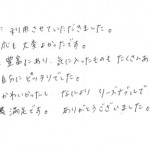 利用させていただきました。
も大変よかったです。
豊富にあり、気に入ったものもたくさんあ
自分にピッタリでした。
かわいかったし、なにより リーズナブルで
満足です。 ありがとうございました。